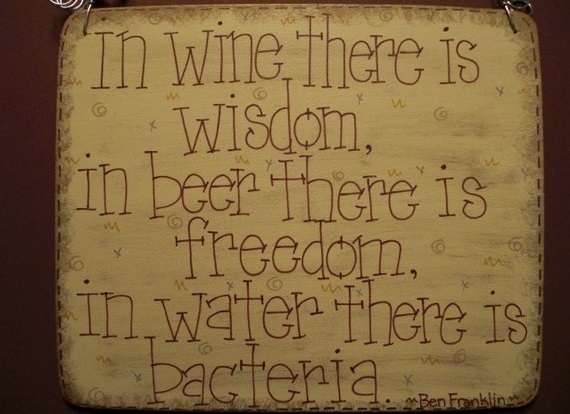 In wine there is
wisdom,
in beer there is
freedom,
in water there is
bacteria.
~Ben Franklin~